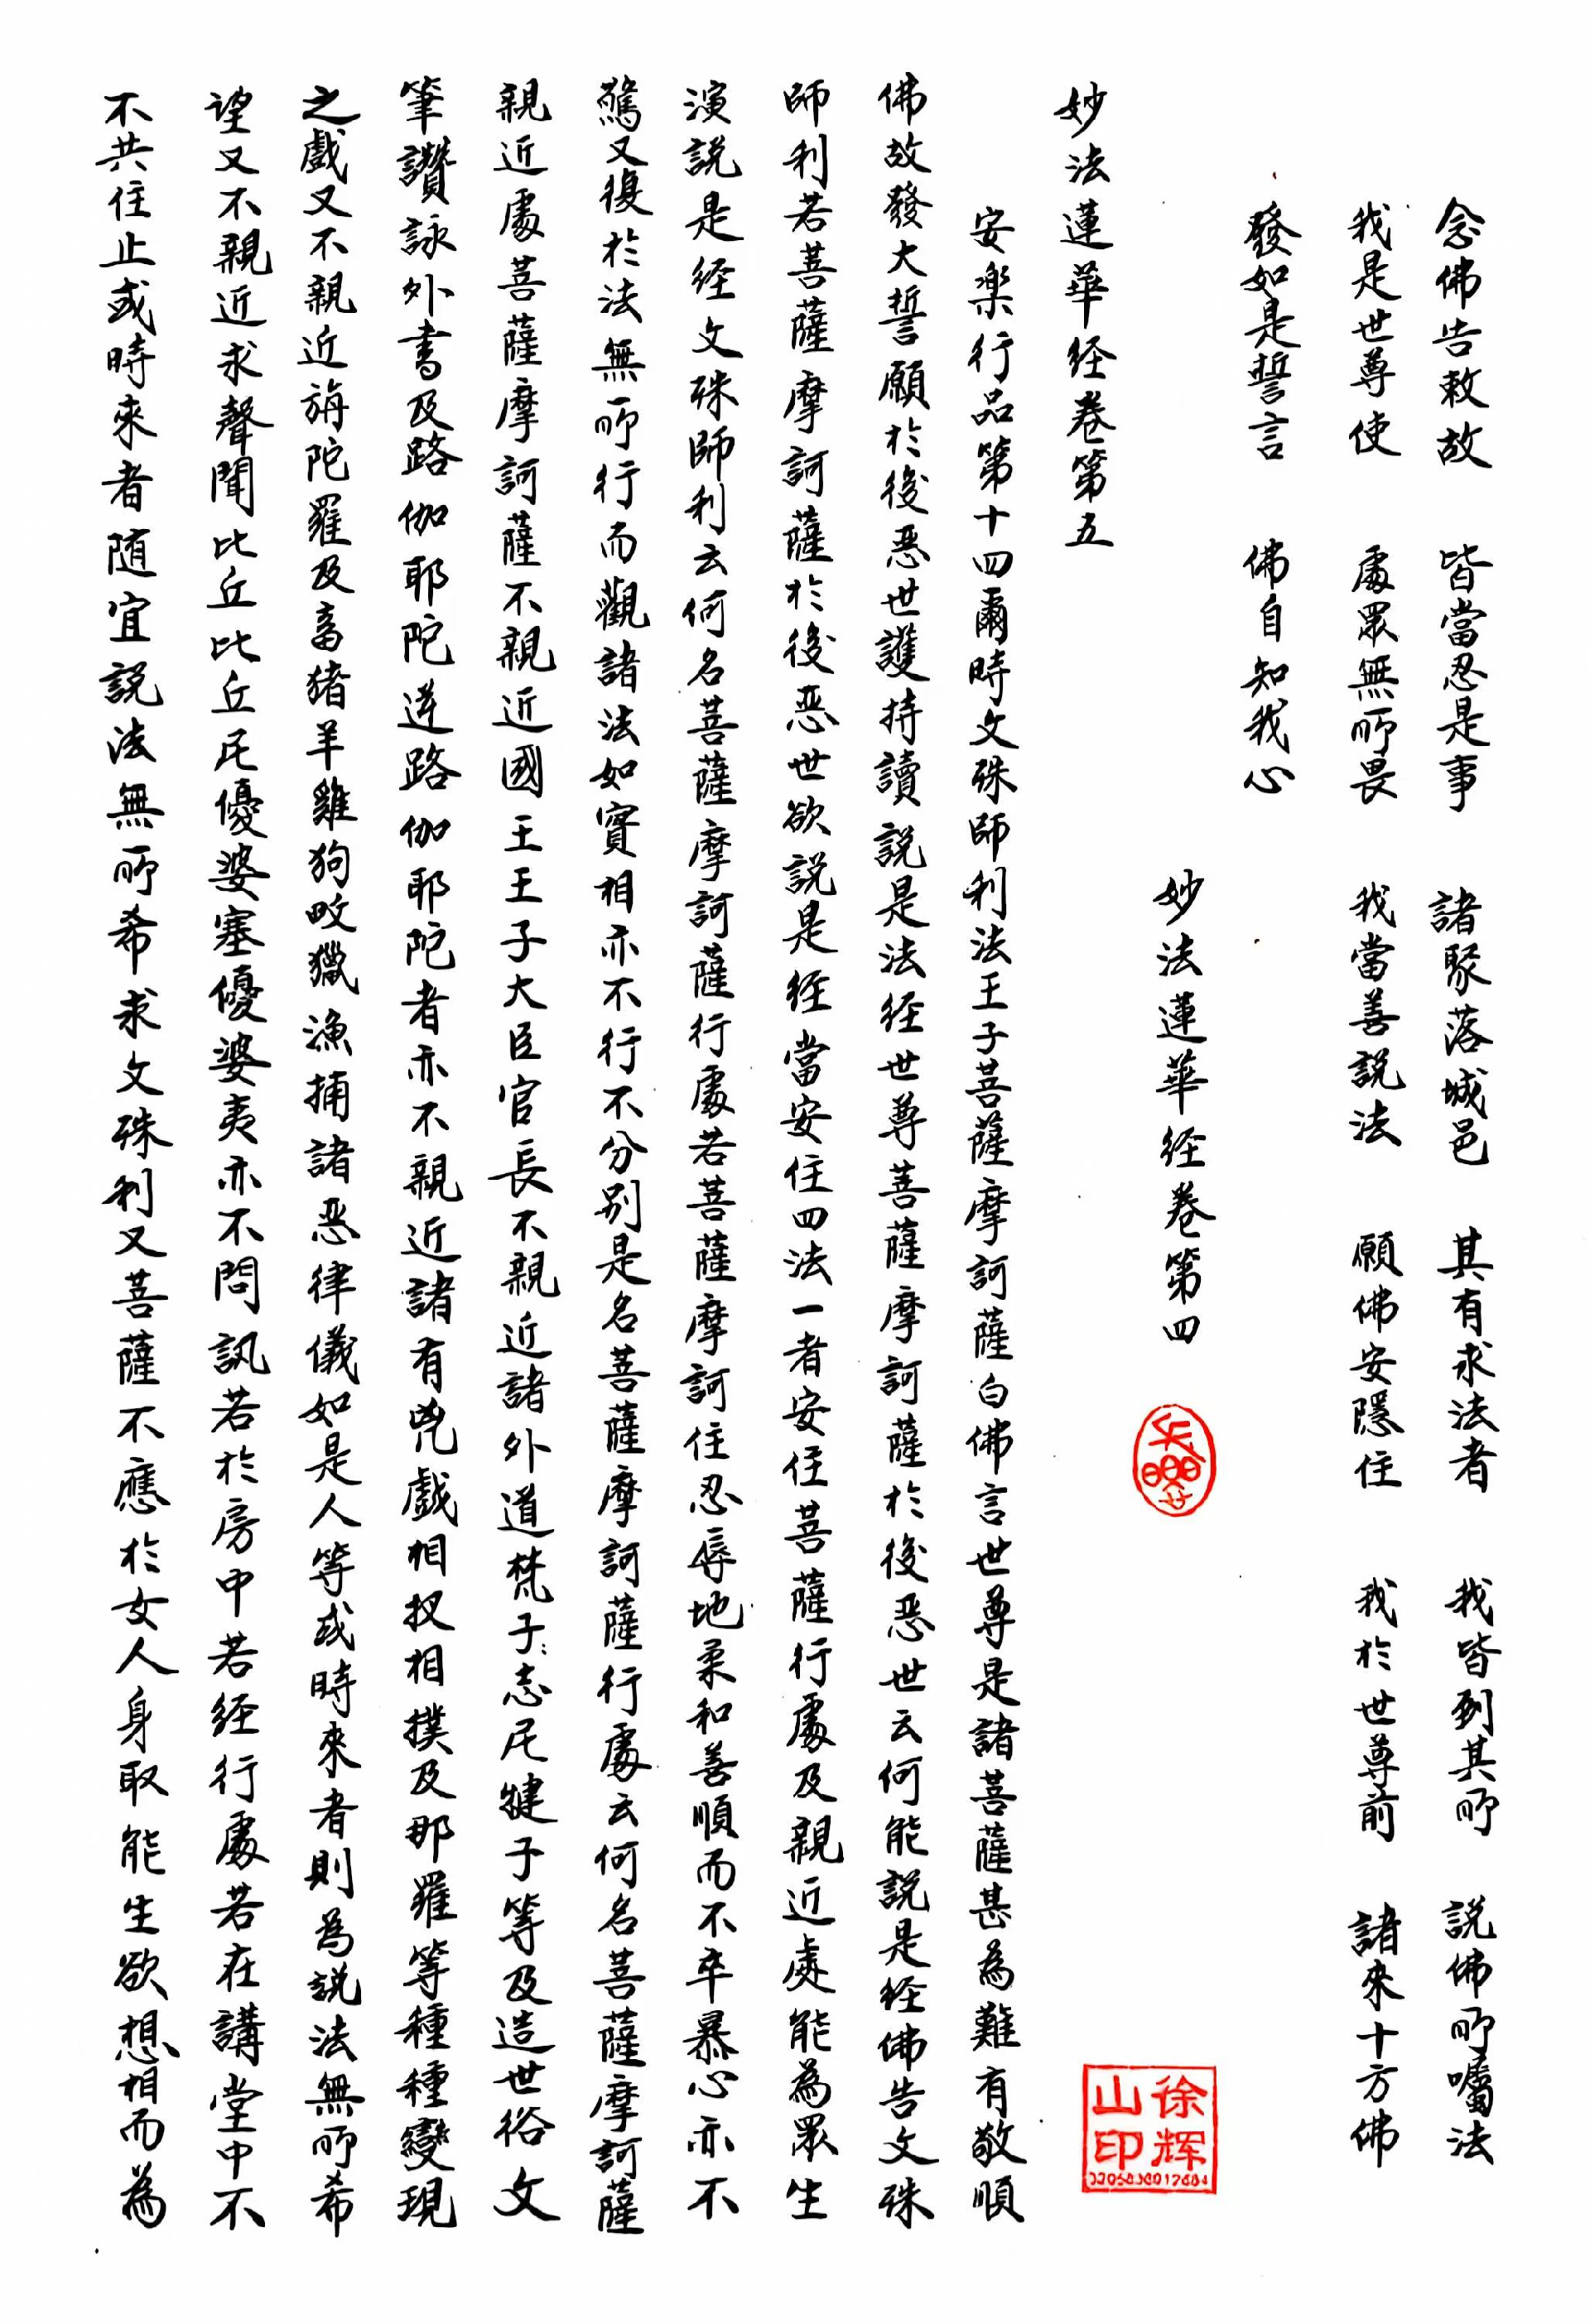 念佛告敕故　皆當忍是事　諸聚落城邑　其有求法者　我皆到其所　說佛所囑法
我是世尊使　處眾無所畏　我當善說法　願佛安隱住　我於世尊前　諸來十方佛
發如是誓言　佛自知我心
妙法蓮華经卷第四
徐辉山印
妙法蓮華经卷第五
安樂行品第十四爾時文殊師利法王子菩薩摩訶薩白佛言世尊是諸菩薩甚為難有敬順
佛故發大誓願於後惡世護持讀說是法经世尊菩薩摩訶薩於後惡世云何能說是经佛告文殊
師利若菩薩摩訶薩於後惡世欲說是经當安住四法一者安住菩薩行處及親近處能為眾生
演說是经文殊師利云何名菩薩摩訶薩行處若菩薩摩訶住忍辱地柔和善順而不卒暴心亦不
驚又復於法無所行而觀諸法如實相亦不行不分别是名菩薩摩訶薩行處云何名菩薩摩訶薩
親近處菩薩摩訶薩不親近國王王子大臣官長不親近諸外道梵子志尼犍子等及造世俗文
筆讚詠外書及路伽耶陀逆路伽耶陀者亦不親近諸有兇戲相扠相撲及那羅等種種變現
之戲又不親近旃陀羅及畜猪羊雞狗畋獵漁捕諸惡律儀如是人等或時來者則為說法無所希
望又不親近求聲聞比丘比丘尼優婆塞優婆夷亦不問訊若於房中若经行處若在講堂中不
不共住止或時來者随宜說法無所希求文殊利又菩薩不應於女人身取能生欲想相而為